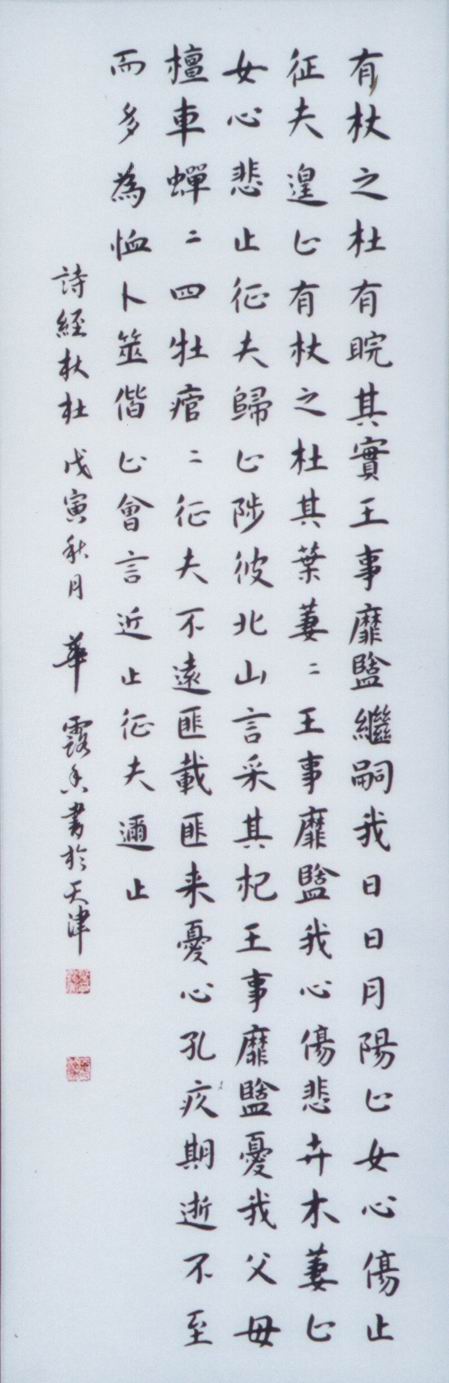 有杕之杜有睆其實王事靡盬繼嗣我日日月陽止女心傷止
征夫遑止有杕之杜其葉萋〻王事靡盬我心傷悲卉木萋止
女心悲止征夫歸止陟彼北山言采其杞王事靡盬憂我父母
檀車蟬〻四牡痯〻征夫不遠匪載匪来憂心孔疚期逝不至
而多為恤卜筮偕止會言近止征夫邇止
詩經杕杜 戊寅秋月 華露香書於天津